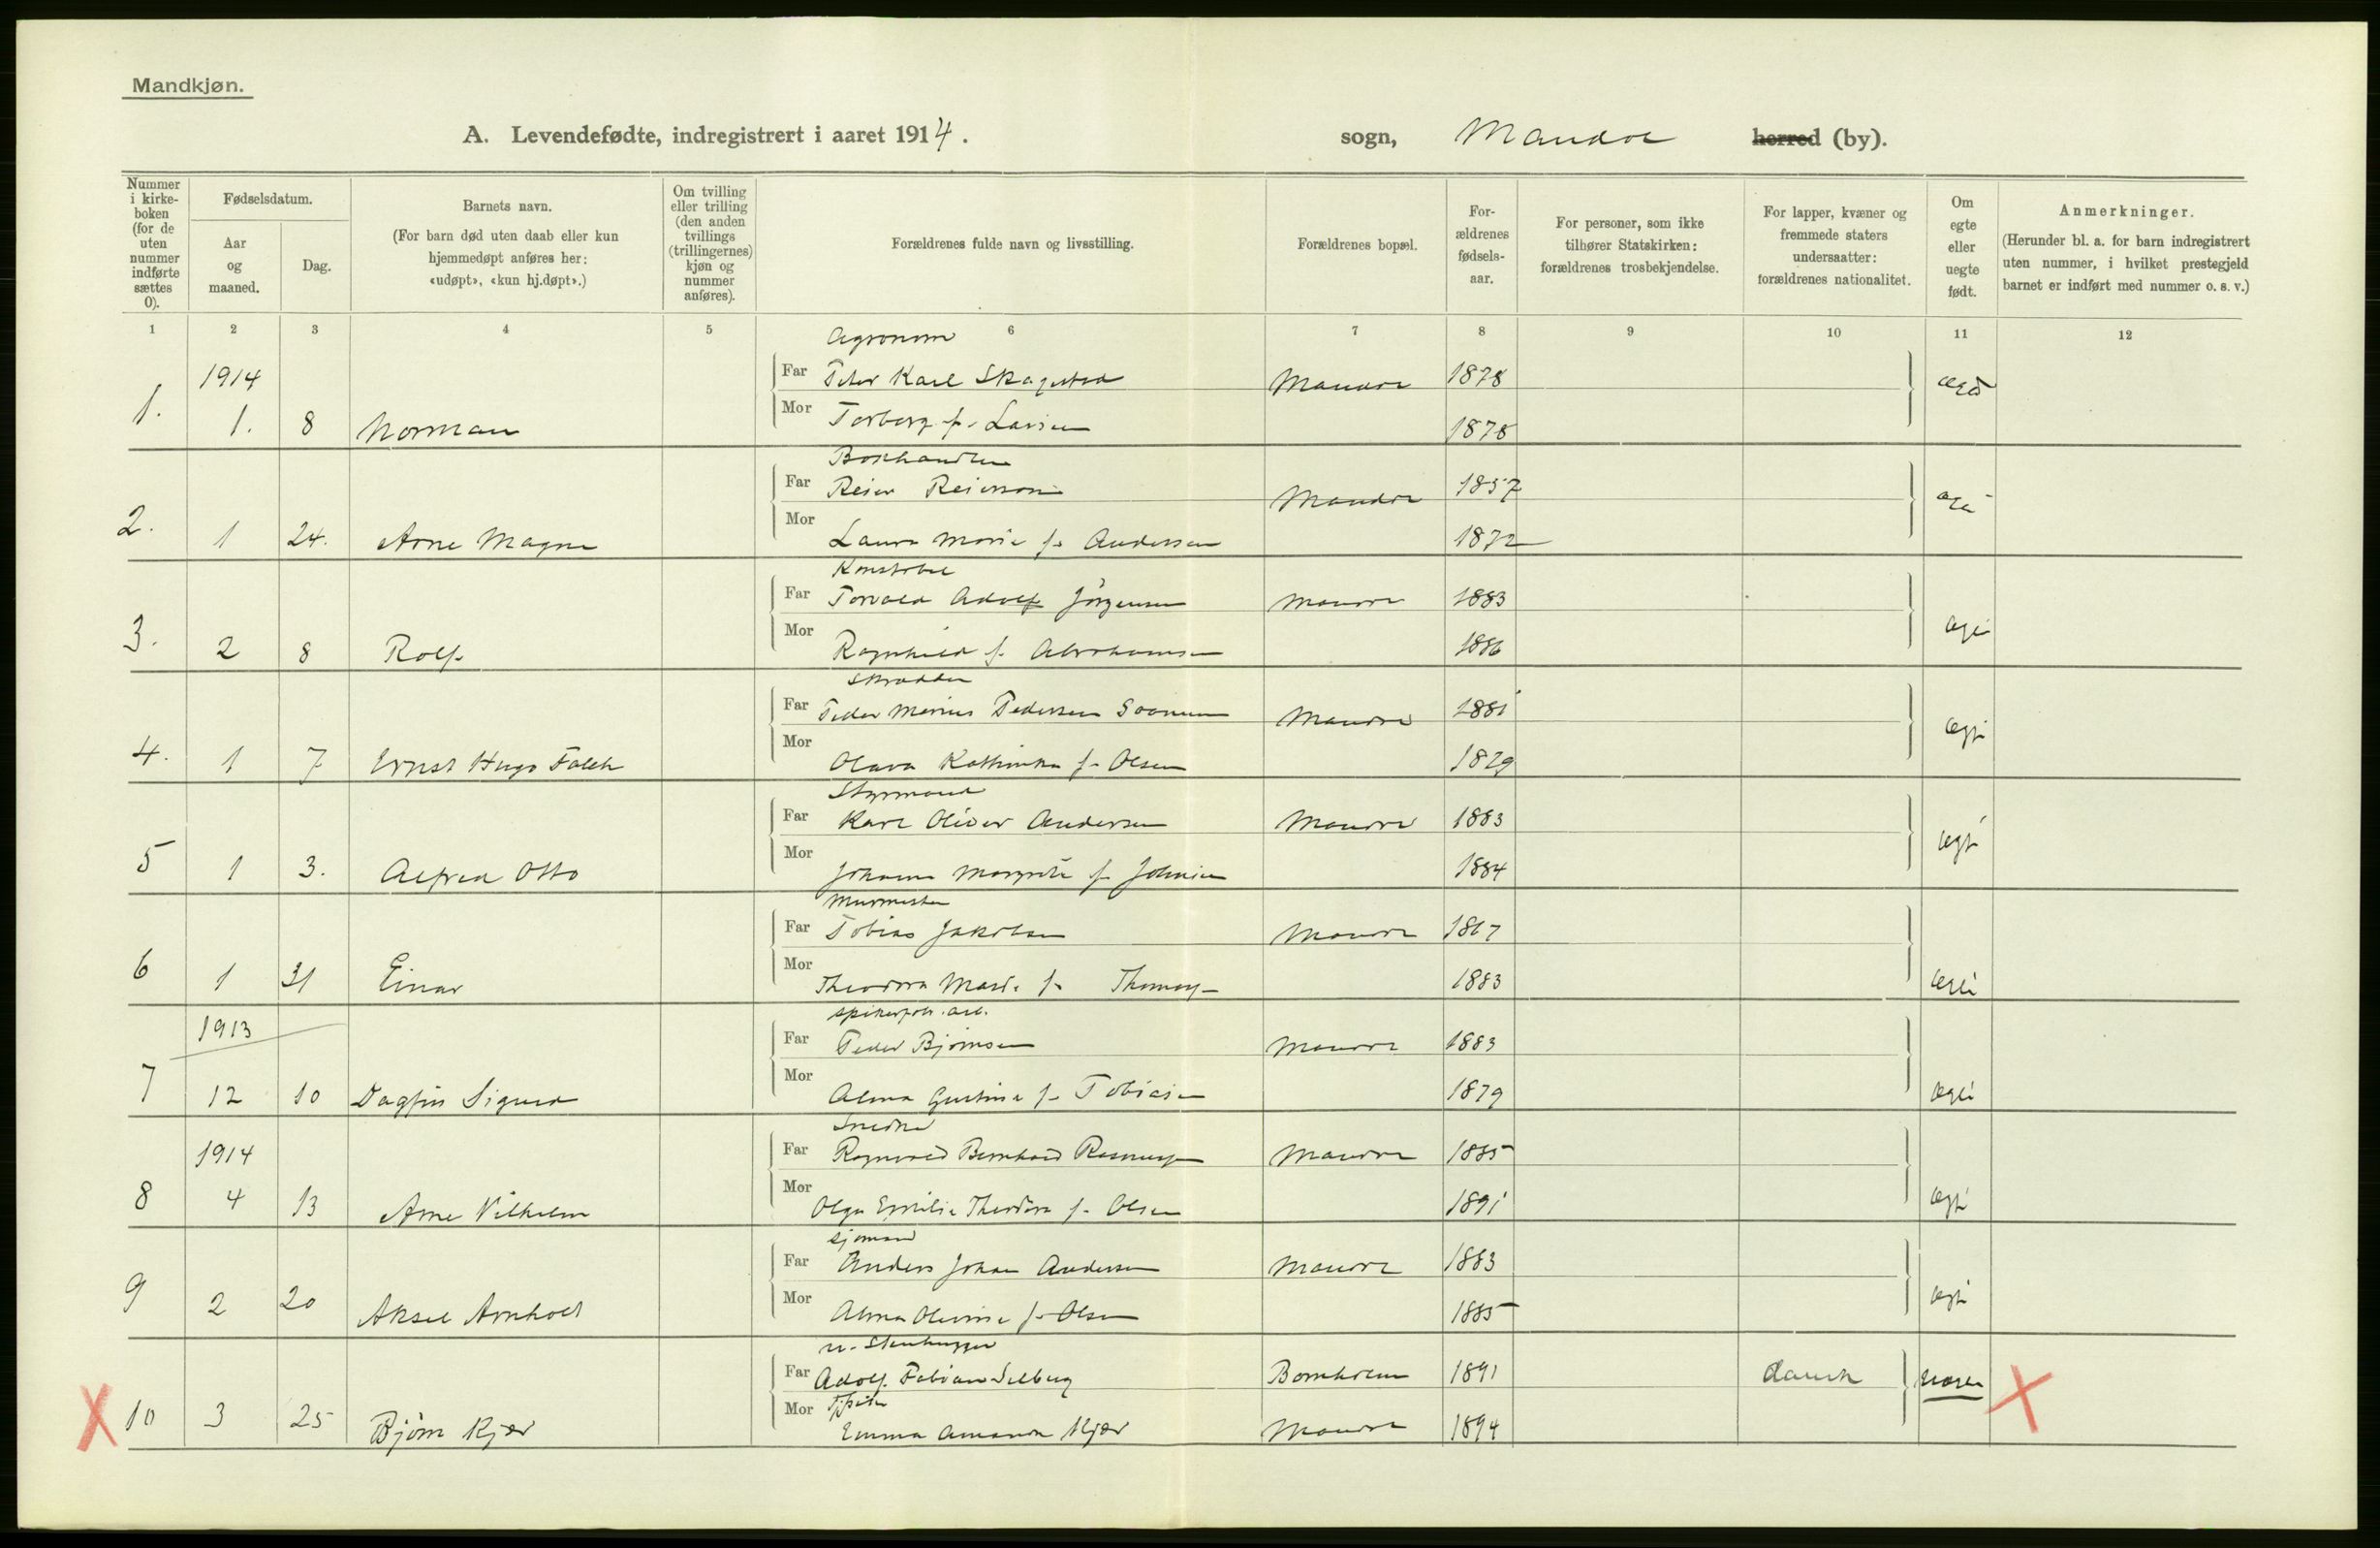 Mandkjøn.
A. Levendefødte, indregistrert i aaret 1914.
sogn, Mandal herred (by).
Nummer i kirkeboken (for de uten nummer indførte sættes 0).
Fødselsdatum.
Aar og maaned.
Dag.
Barnets navn.
(For barn død uten daab eller kun hjemmedøpt anføres her: «udøpt», «kun hj.døpt».)
Om tvilling eller trilling (den anden tvillings (trillingernes) kjøn og nummer anføres).
Forældrenes fulde navn og livsstilling.
Forældrenes bopæl.
Forældrenes fødselsaar.
For personer, som ikke tilhører Statskirken: forældrenes trosbekjendelse.
For lapper, kvæner og fremmede staters undersaatter: forældrenes nationalitet.
Om egte eller uegte født.
Anmerkninger.
(Herunder bl. a. for barn indregistrert uten nummer, i hvilket prestegjeld barnet er indført med nummer o. s. v.)
1 2 3 4 5 6 7 8 9 10 11 12
Agronom
1914 Far Peter Karl Skagestad Mandal 1878
1. 1. 8 Norman Mor Torborg f. Larsen 1878
Bokhandler
Far Reier Reierson Mandal 1857
2. 1 24. Arne Magne Mor Laura Marie f. Andersen 1872
Konstabel
Far Torvald Adolf Jørgensen Mandal 1883
3. 2 8 Rolf Mor Ragnhild f. Abrahamsen 1886
Skrædder
Far Peder Marius Pedersen Mandal 1881
4. 1 7 Ernst Hugo Falck Mor Olava Kathinka f. Olsen 1879
Styrmand
Far Karl Oliver Andersen Mandal 1883
5 1 3. Alfred Otto Mor Johanne Margrete f. Johnsen 1884 egte
Murmester
Far Tobias Jakobsen Mandal 1867
6 1 31 Einar Mor Theodora Marie f. 1883 egte
1913 spikerfabr. arb.
Far Peder Bjørnsen Mandal 1883
7 12 10 Dagfin Sigurd Mor Alma Gustina f. Tobiasen 1879 egte
Snedker
1914 Far Ragnvald Bernhard Rasmussen Mandal 1885
8 4 13 Arne Vilhelm Mor Olga Emilie Theodora f. Olsen 1891 egte
sjømand
Far Anders Johan Andersen Mandal 1883
9 2 20 Aksel Arnholt Mor Alma Olivine f. Olsen 1885 egte
u. Stenhugger
Far Adolf Fabian Selberg Bornholm 1891 dansk uegte
10 3 25 Bjørn Kjær Mor Emma Amanda Kjær Mandal 1894